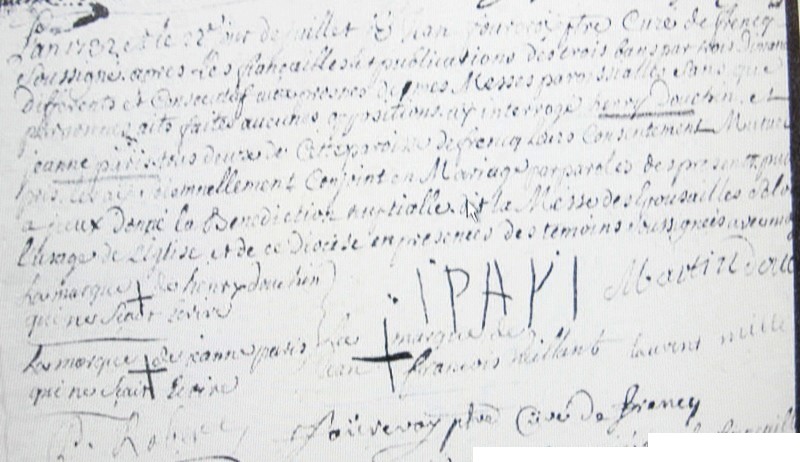 L'an 1732 et le 22e jour de juillet je Jean fourcroy ptre Curé de frencq
soussigné apres Les fiançailles et publications des trois bans par trois Dimanc
differents et Consecutif aux prosnes de mes Messes paroissialles Sans que
personnes aits faites aucunes oppositions ay interrogé henry douchin et
jeanne paris tous deux de Cette paroisse de frencq Leurs Consentement Mutuel
pris Les ai solemnellement Conjoint en Mariage par paroles de present puis
a jceux donné la Benediction nuptialle dit la Messe des Epousailles selon
l'usage de L'Eglise et de ce Diocèse en presences des temoins soussignées avec moy
La marque de henry douchin
qui ne sçait Ecrire
IPAYI
Martin
La marque de jeanne paris
qui ne sçait Ecrire
La marque de
Jean françois Meillent
Laurent mille
fourcroy ptre Curé De frencq